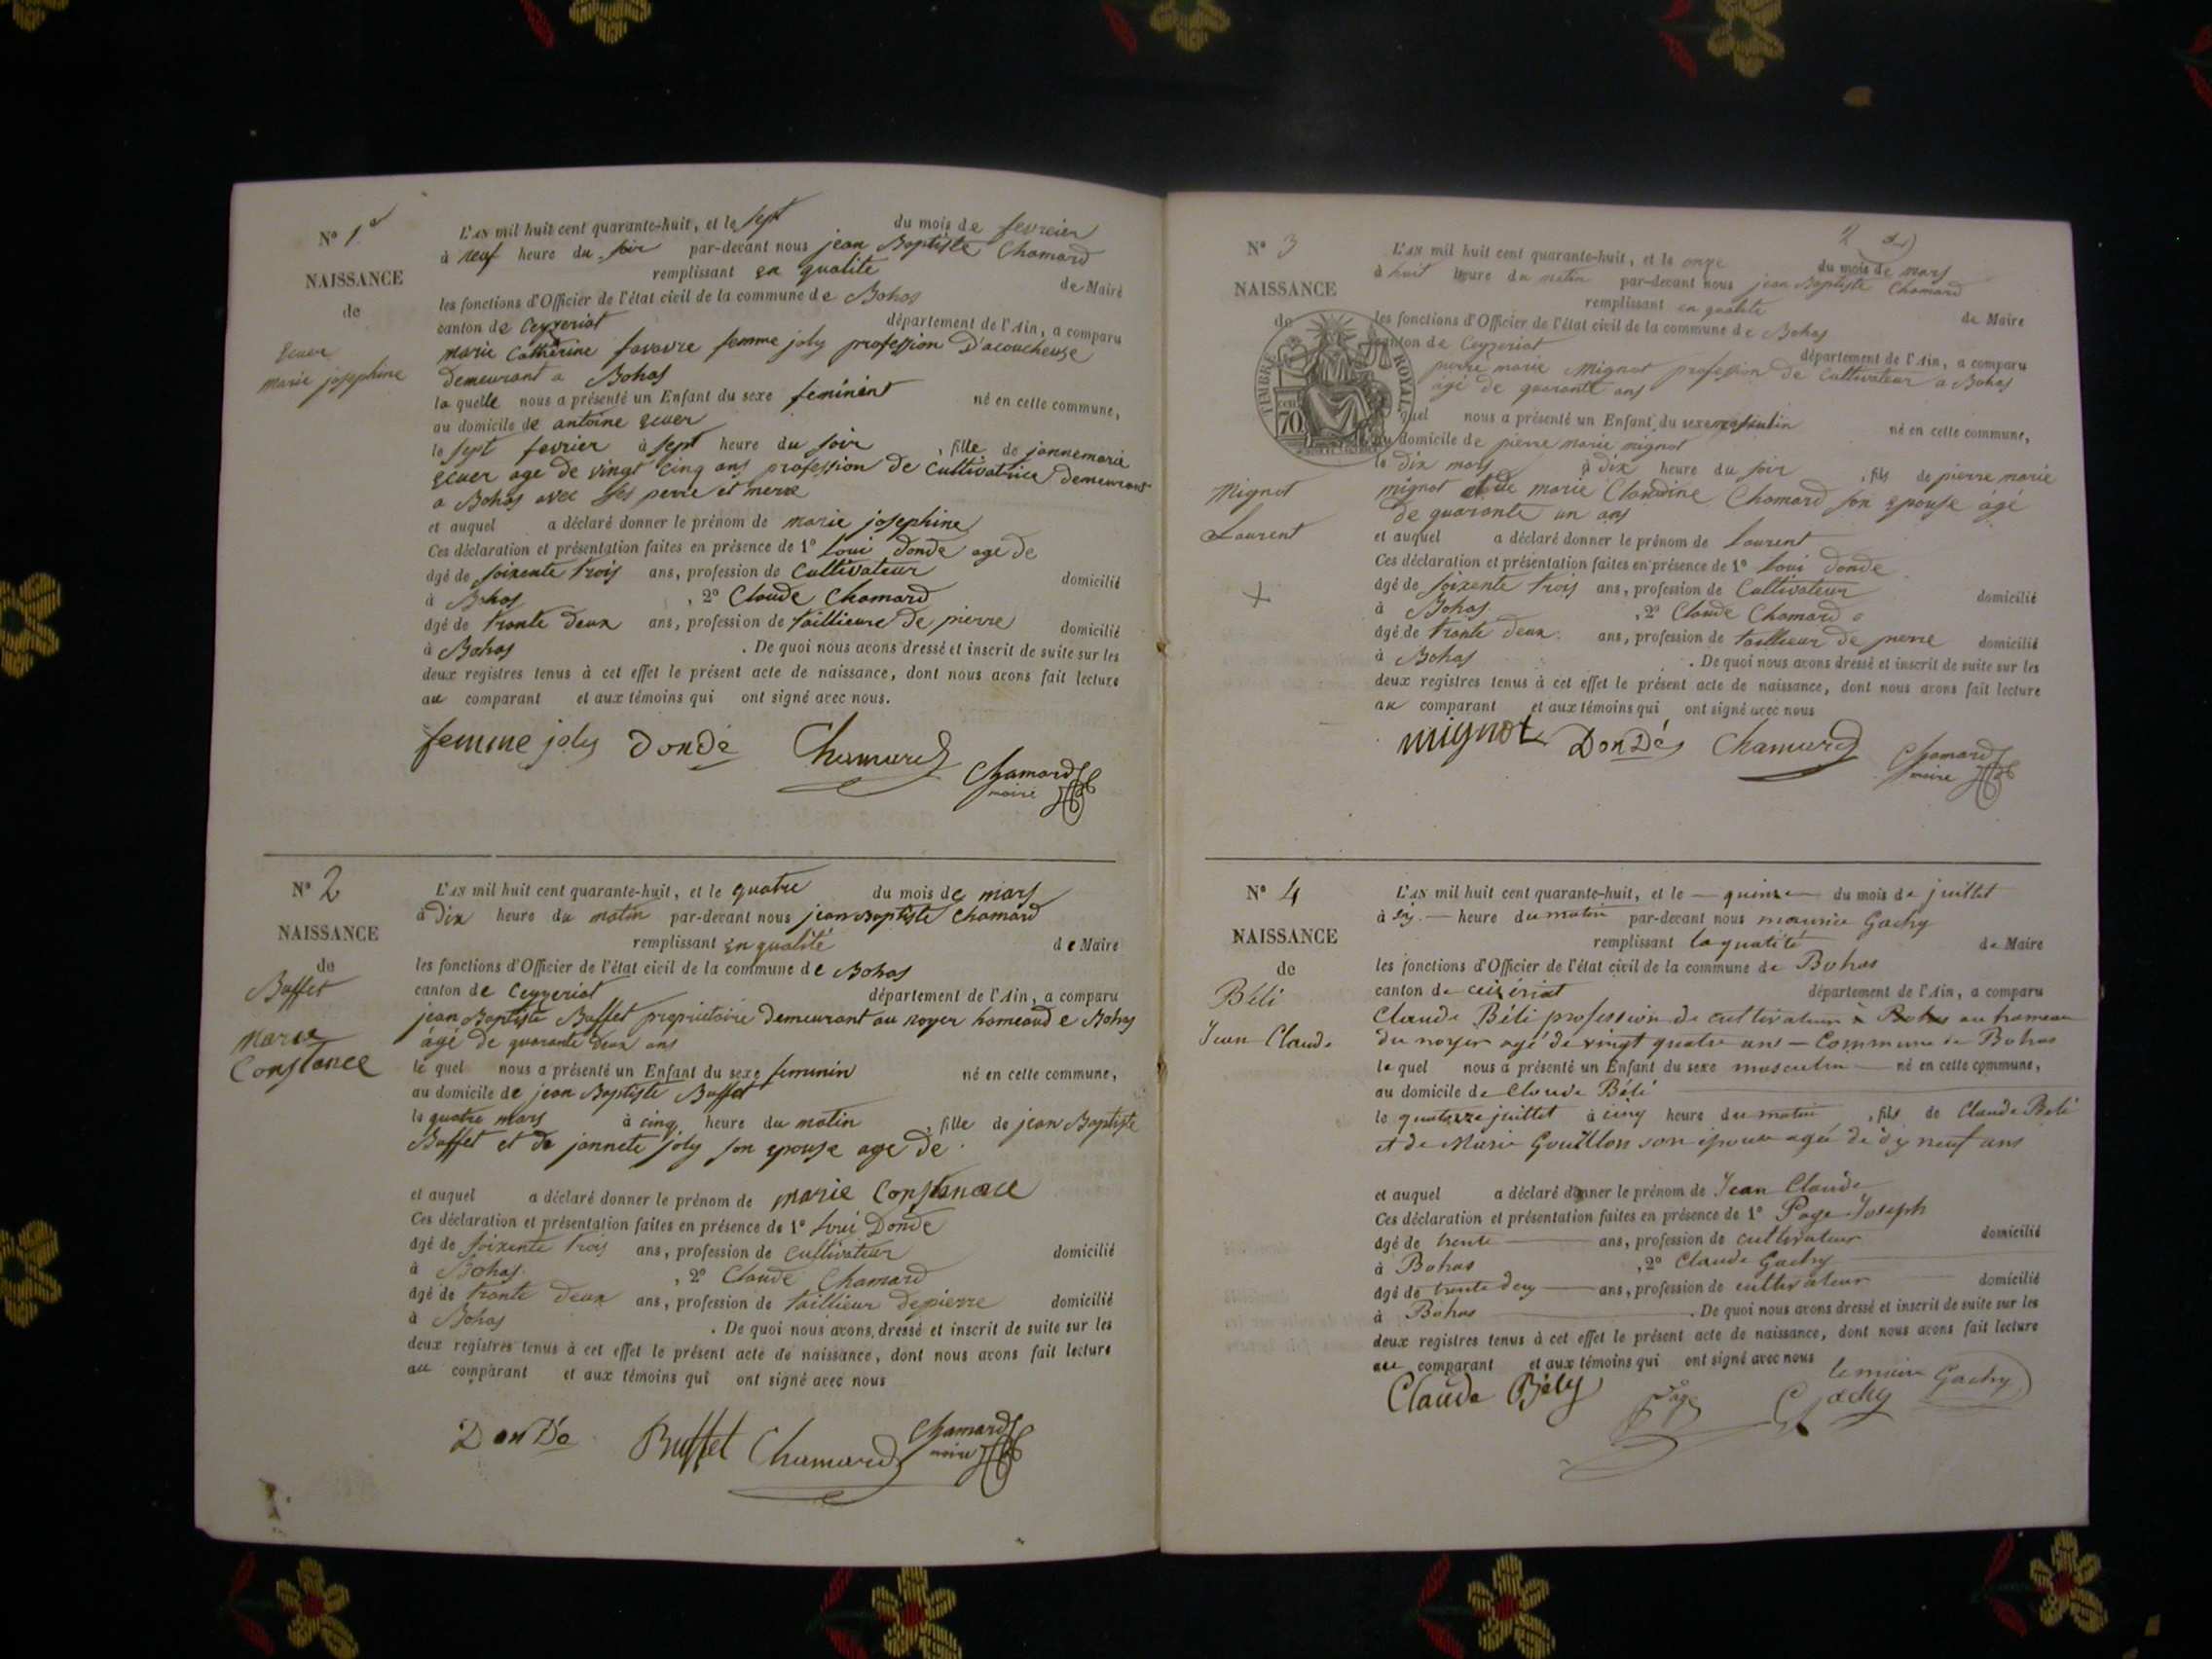 N° 1er
NAISSANCE
de
Ecuer
marie josephine
L'AN mil huit cent quarante-huit, et le sept du mois de fevreier
à neuf heure du soir par-devant nous jean Baptiste Chamard
remplissant en qualite de Maire
les fonctions d'Officier de l'état civil de la commune de Bohas
canton de Ceyzeriat département de l'Ain, a comparu
marie Catherine favavre femme joly profession D'acoucheuse
demeurant a Bohas
la quelle nous a présenté un Enfant du sexe feminint né en cette commune,
au domicile de antoine Ecuer
le sept fevrier à sept heure du soir, fille de jannemarie
Ecuer age de vingt cinq ans profession de Cultivatrice Demeurant
a Bohas avec ses perre et merre
et auquel a déclaré donner le prénom de marie josephine
Ces déclaration et présentation faites en présence de 1° loui donde age de
âgé de soixente trois ans, profession de Cultivateur domicilié
à Bohas, 2° Claude Chamard
âgé de trante deux ans, profession de taillieure de pierre domicilié
à Bohas. De quoi nous avons dressé et inscrit de suite sur les
deux registres tenus à cet effet le présent acte de naissance, dont nous avons fait lecture
au comparant et aux témoins qui ont signé avec nous.
femme joly Dondé Chamard Chamard
maire
N° 2
NAISSANCE
de
Buffet
Marie
Constance
L'AN mil huit cent quarante-huit, et le quatre du mois de mars
à dix heure du matin par-devant nous jean Baptiste Chamard
remplissant en qualité de Maire
les fonctions d'Officier de l'état civil de la commune de Bohas
canton de Ceyzeriat département de l'Ain, a comparu
jean Baptiste Buffet proprietaire Demeurant au noyer hameaud e Bohas
âgé de quarante deux ans
le quel nous a présenté un Enfant du sexe feminin né en cette commune,
au domicile de jean Baptiste Buffet
le quatre mars à cinq heure du matin, fille de jean Baptiste
Buffet et de jannete joly son epouse age de
et auquel a déclaré donner le prénom de marie Constance
Ces déclaration et présentation faites en présence de 1° loui Donde
âgé de soixente trois ans, profession de cultivateur domicilié
à Bohas, 2° Claude Chamard
âgé de trante deux ans, profession de taillieur de pierre domicilié
à Bohas. De quoi nous avons dressé et inscrit de suite sur les
deux registres tenus à cet effet le présent acte de naissance, dont nous avons fait lecture
au comparant et aux témoins qui ont signé avec nous
DonDé Buffet Chamard Chamard
maire
2
N° 3
NAISSANCE
de
TIMBRE ROYAL
70
Mignot
Laurent
L'AN mil huit cent quarante-huit, et le onze du mois de mars
à huit heure du matin par-devant nous jean Baptiste Chamard
remplissant en qualite de Maire
les fonctions d'Officier de l'état civil de la commune de Bohas
canton de Ceyzeriat département de l'Ain, a comparu
pierre marie Mignot profession de Cultivateur a Bohas
age de quarante ans
quel nous a présenté un Enfant du sexe masculin né en cette commune,
au domicile de pierre marie mignot
le dix mars à dix heure du soir, fils de pierre marie
mignot et de marie Claudine Chamard son epouse âgé
de quarante un ans
et auquel a déclaré donner le prénom de laurent
Ces déclaration et présentation faites en présence de 1° loui donde
âgé de soixente trois ans, profession de Cultivateur domicilié
à Bohas, 2° Claude Chamard
âgé de trante deux ans, profession de taillieur de pierre domicilié
à Bohas. De quoi nous avons dressé et inscrit de suite sur les
deux registres tenus à cet effet le présent acte de naissance, dont nous avons fait lecture
au comparant et aux témoins qui ont signé avec nous
mignot DonDés Chamard Chamard
maire
N° 4
NAISSANCE
de
Béli
Jean Claude
L'AN mil huit cent quarante-huit, et le quinze du mois de juillet
à six heure du matin par-devant nous maurice Gachy
remplissant la qualité de Maire
les fonctions d'Officier de l'état civil de la commune de Bohas
canton de ceizériat département de l'Ain, a comparu
Claude Béli profession de cultivateur a Bohas au hameau
du noyer agé de vingt quatre ans Commune de Bohas
le quel nous a présenté un Enfant du sexe masculin né en cette commune,
au domicile de Claude Béli
le quatorze juillet à cinq heure du matin, fils de Claude Beli
et de Marie Gouillon son épouse agée de dix neuf ans
et auquel a déclaré donner le prénom de Jean Claude
Ces déclaration et présentation faites en présence de 1° Page Joseph
âgé de trente ans, profession de cultivateur domicilié
à Bohas, 2° Claude Gachy
âgé de trente deux ans, profession de cultivateur domicilié
à Bohas. De quoi nous avons dressé et inscrit de suite sur les
deux registres tenus à cet effet le présent acte de naissance, dont nous avons fait lecture
au comparant et aux témoins qui ont signé avec nous
Claude Bély Page Gachy le maire Gachy